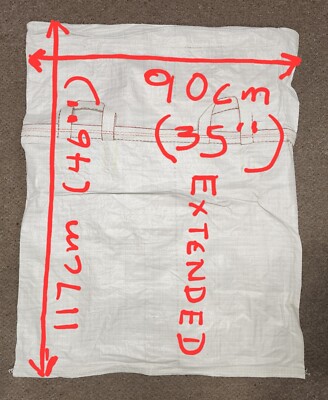 90cm
(35")
117cm (46")
EXTENDED